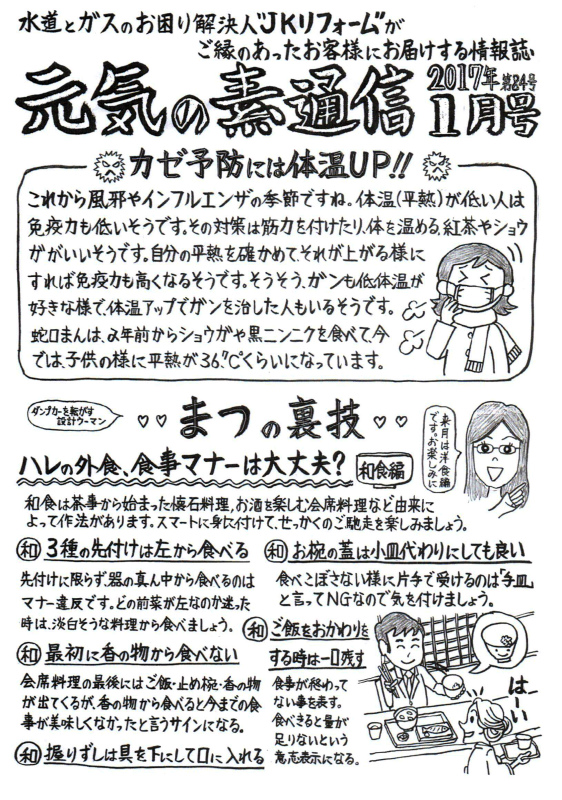 水道とガスのお困り解決人"JKリフォーム"が
ご縁のあったお客様にお届けする情報誌
元気の素通信
2017年 第84号
1月号
カゼ予防には体温UP!!
これから風邪やインフルエンザの季節ですね。体温(平熱)が低い人は
免疫力も低いそうです。その対策は筋力を付けたり、体を温める、紅茶やショウ
ガがいいそうです。自分の平熱を確かめて、それが上がる様に
すれば免疫力も高くなるそうです。そうそう、ガンも低体温が
好きな様で、体温アップでガンを治した人もいるそうです。
蛇口まんは、2年前からショウガや黒ニンニクを食べて、今
では、子供の様に平熱が36.7℃くらいになっています。
ダンプカーを転がす
設計ウーマン
♡♡ まつの裏技 ♡♡
来月は洋食編
です。お楽しみに
ハレの外食、食事マナーは大丈夫?
和食編
和食は茶事から始まった懐石料理、お酒を楽しむ会席料理など由来に
よって作法があります。スマートに身に付けて、せっかくのご馳走を楽しみましょう。
和 3種の先付けは左から食べる
先付けに限らず、器の真ん中から食べるのは
マナー違反です。どの前菜が左なのか迷った
時は、淡白そうな料理から食べましょう。
和 最初に香の物から食べない
会席料理の最後にはご飯・止め椀・香の物
が出てくるが、香の物から食べると今までの食
事が美味しくなかったと言うサインになる。
和 握りずしは具を下にして口に入れる
和 お椀の蓋は小皿代わりにしても良い
食べこぼさない様に片手で受けるのは「手皿」
と言ってNGなので気を付けましょう。
和 ご飯をおかわりを
する時は一口残す
食事が終わって
ない事を表す。
食べきると量が
足りないという
意志表示になる。
はーい